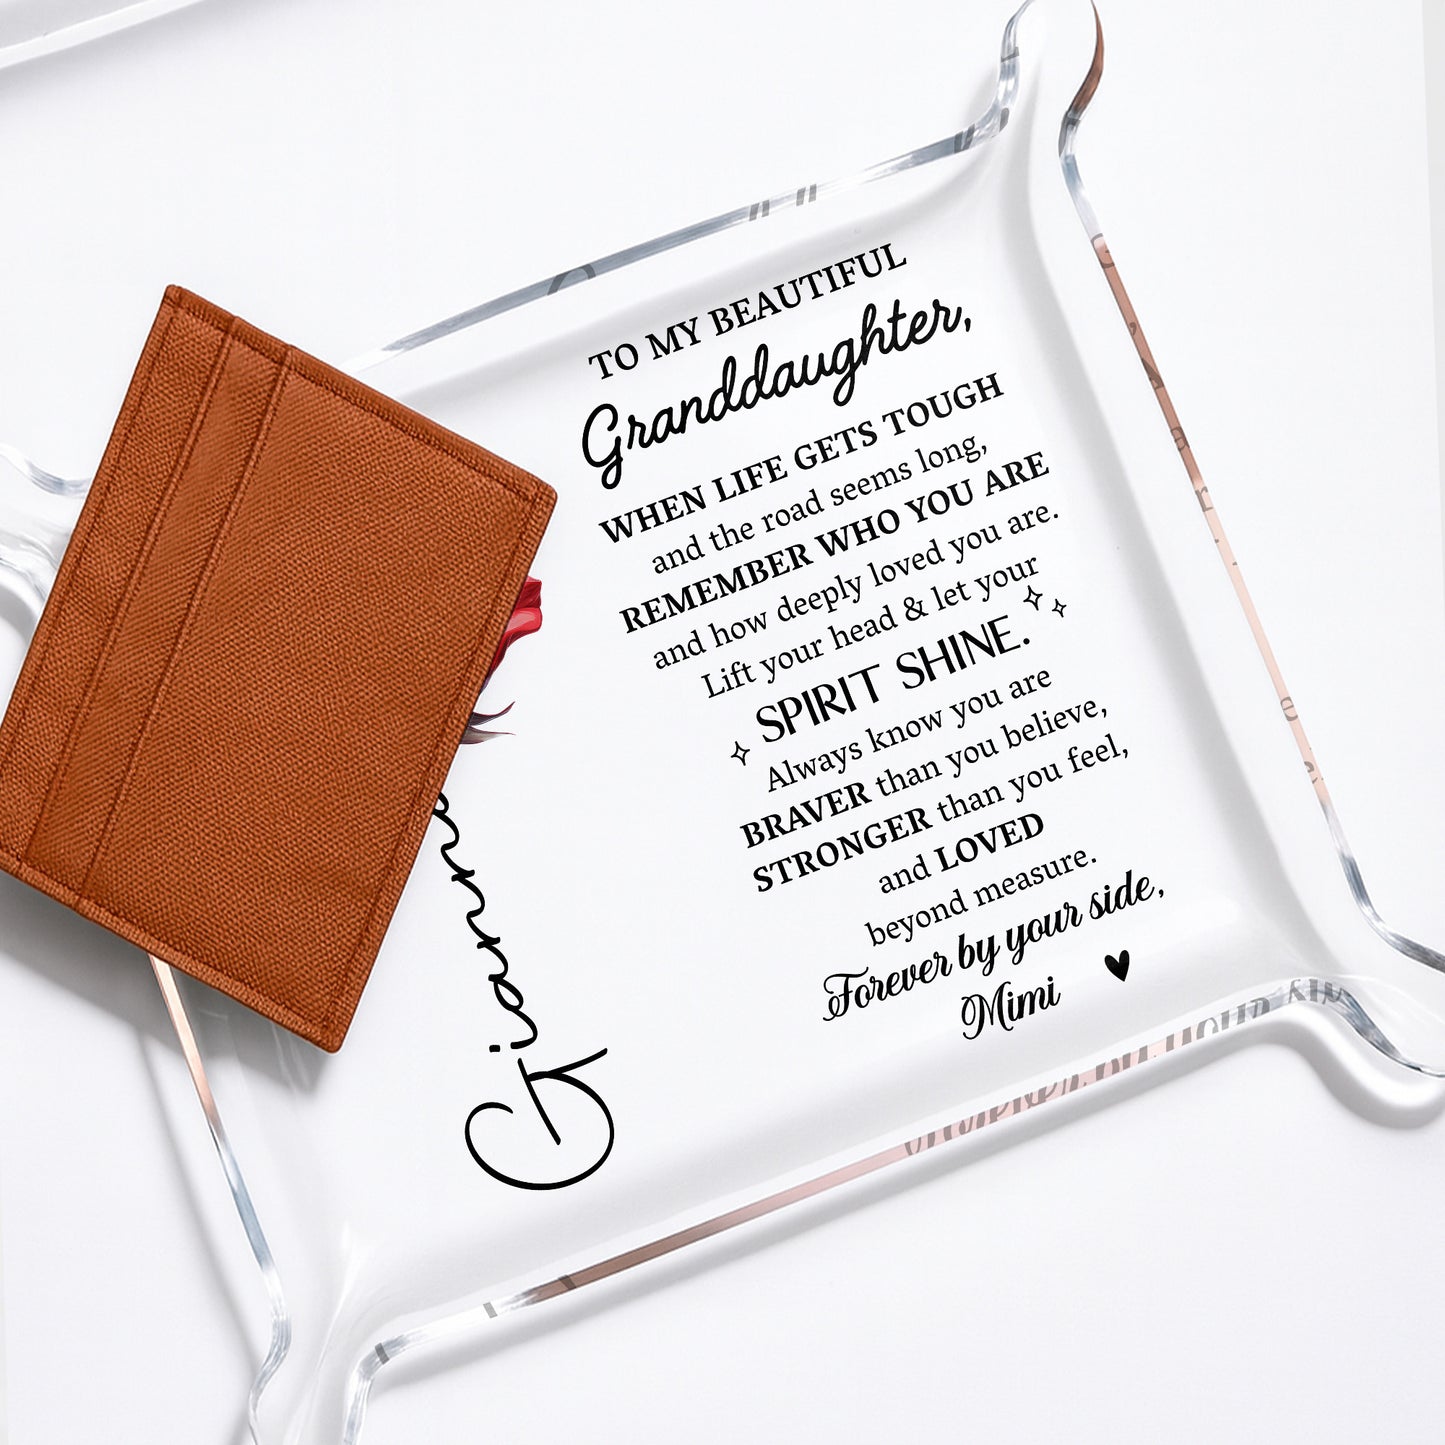 TO MY BEAUTIFUL
Granddaughter,
WHEN LIFE GETS TOUGH
and the road seems long,
REMEMBER WHO YOU ARE
and how deeply loved you are.
Lift your head & let your
SPIRIT SHINE.
Always know you are
BRAVER than you believe,
STRONGER than you feel,
and LOVED
beyond measure.
Forever by your side,
Mimi